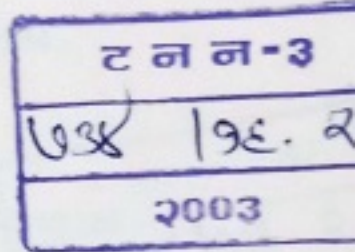 ट न न - ३
७३४ |१६. २
२००३